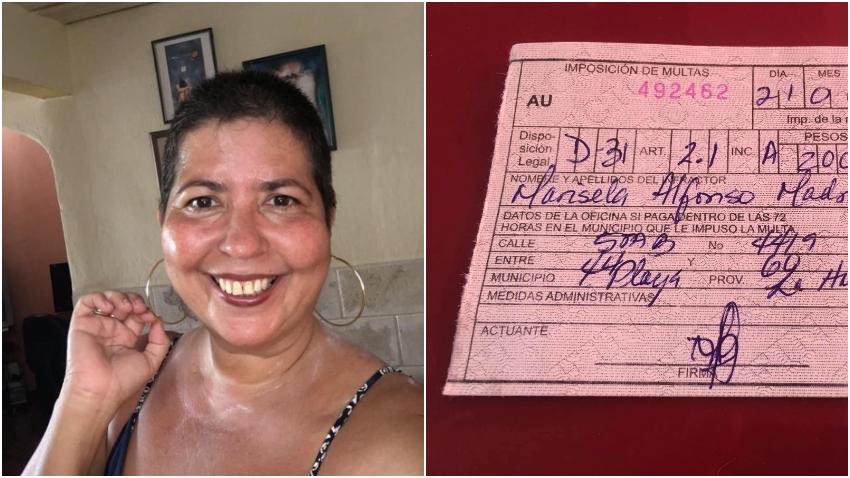 IMPOSICIÓN DE MULTAS
492462
DIA MES
AU
21 0
Imp. de la
Dispo-
sición
Legal
D-31 ART. 2.1 INC. A
PESOS
200
NOMBRE Y APELLIDOS DEL INFRACTOR
Marisela Alfonso Madr
DATOS DE LA OFICINA SI PAGA DENTRO DE LAS 72
HORAS EN EL MUNICIPIO QUE LE IMPUSO LA MULTA
CALLE No 4419
ENTRE 44 Y 60
MUNICIPIO Playa PROV. La Ha
MEDIDAS ADMINISTRATIVAS
ACTUANTE
FIRMA